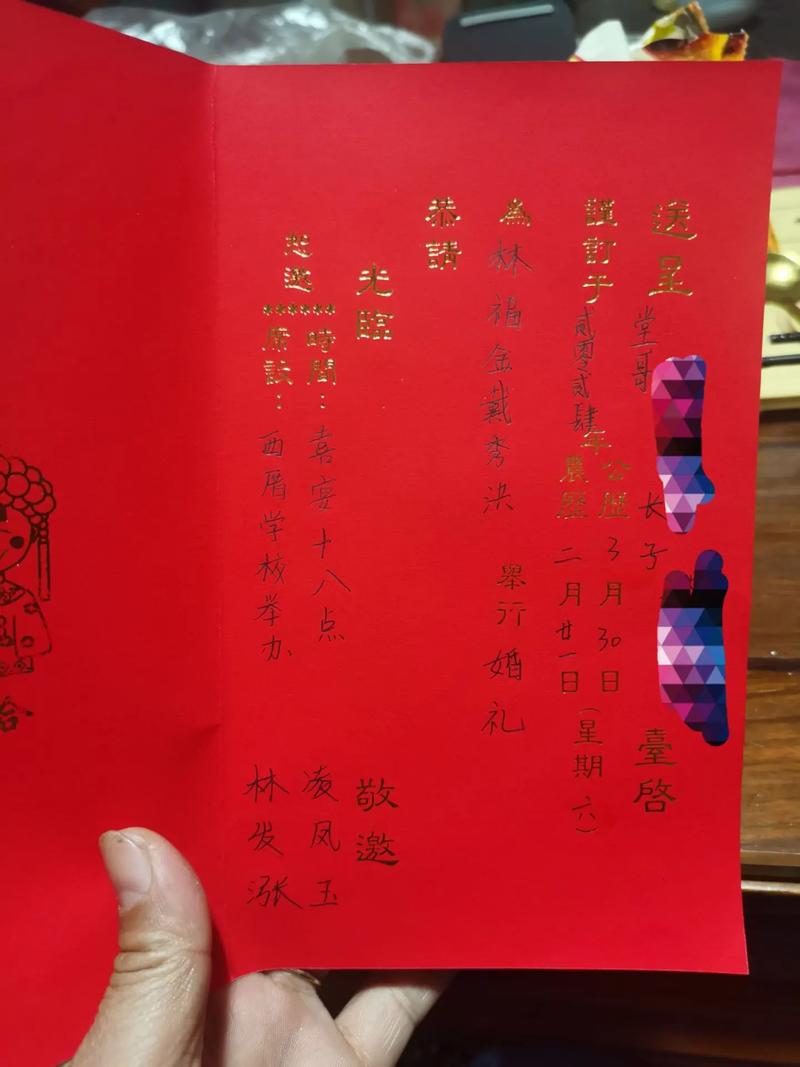 送呈 堂哥 长子 臺啓
謹訂于貳零貳肆年
公曆 3月30日
農曆 二月廿一日
(星期六)
為 林福金戴秀洪 舉行婚礼
恭請
光臨 敬邀
時間：喜宴十八点 凌凤玉
恕邀
席設：西厝学校举办 林发